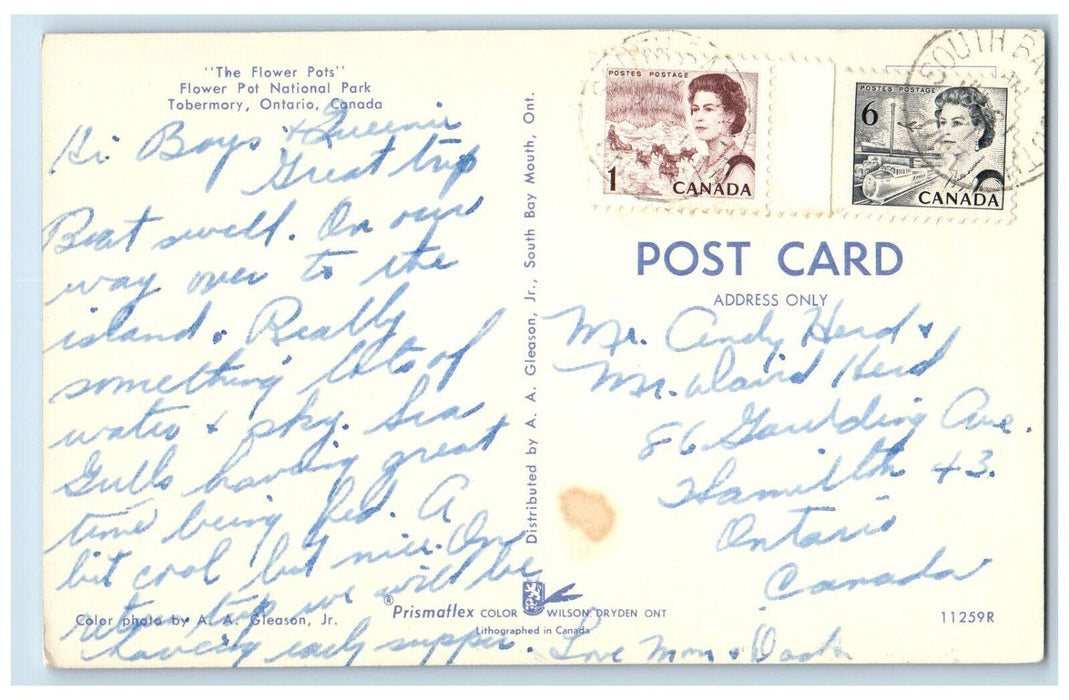 "The Flower Pots"
Flower Pot National Park
Tobermory, Ontario, Canada
Hi Boys + Queenie
Great trip
Boat swell. On our
way over to the
island. Really
something lots of
water + sky. Sea
Gulls having great
time being fed. A
bit cool but nice. On
return trip we will be
having early supper. Love Mom + Dad
Color photo by A. A. Gleason, Jr.
Distributed by A. A. Gleason, Jr., South Bay Mouth, Ont.
® Prismaflex COLOR WILSON, DRYDEN ONT
Lithographed in Canada
11259R
POSTES POSTAGE
1
CANADA
POSTES POSTAGE
6
CANADA
SOUTH BA
POST CARD
ADDRESS ONLY
Mr. Andy Herd +
Mr. David Herd
86 Gaulding Ave.
Hamilton 43.
Ontario
Canada